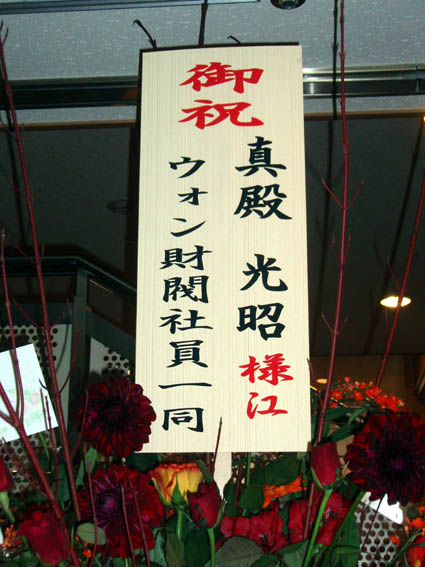 御祝
真殿 光昭 様江
ウォン財閥社員一同